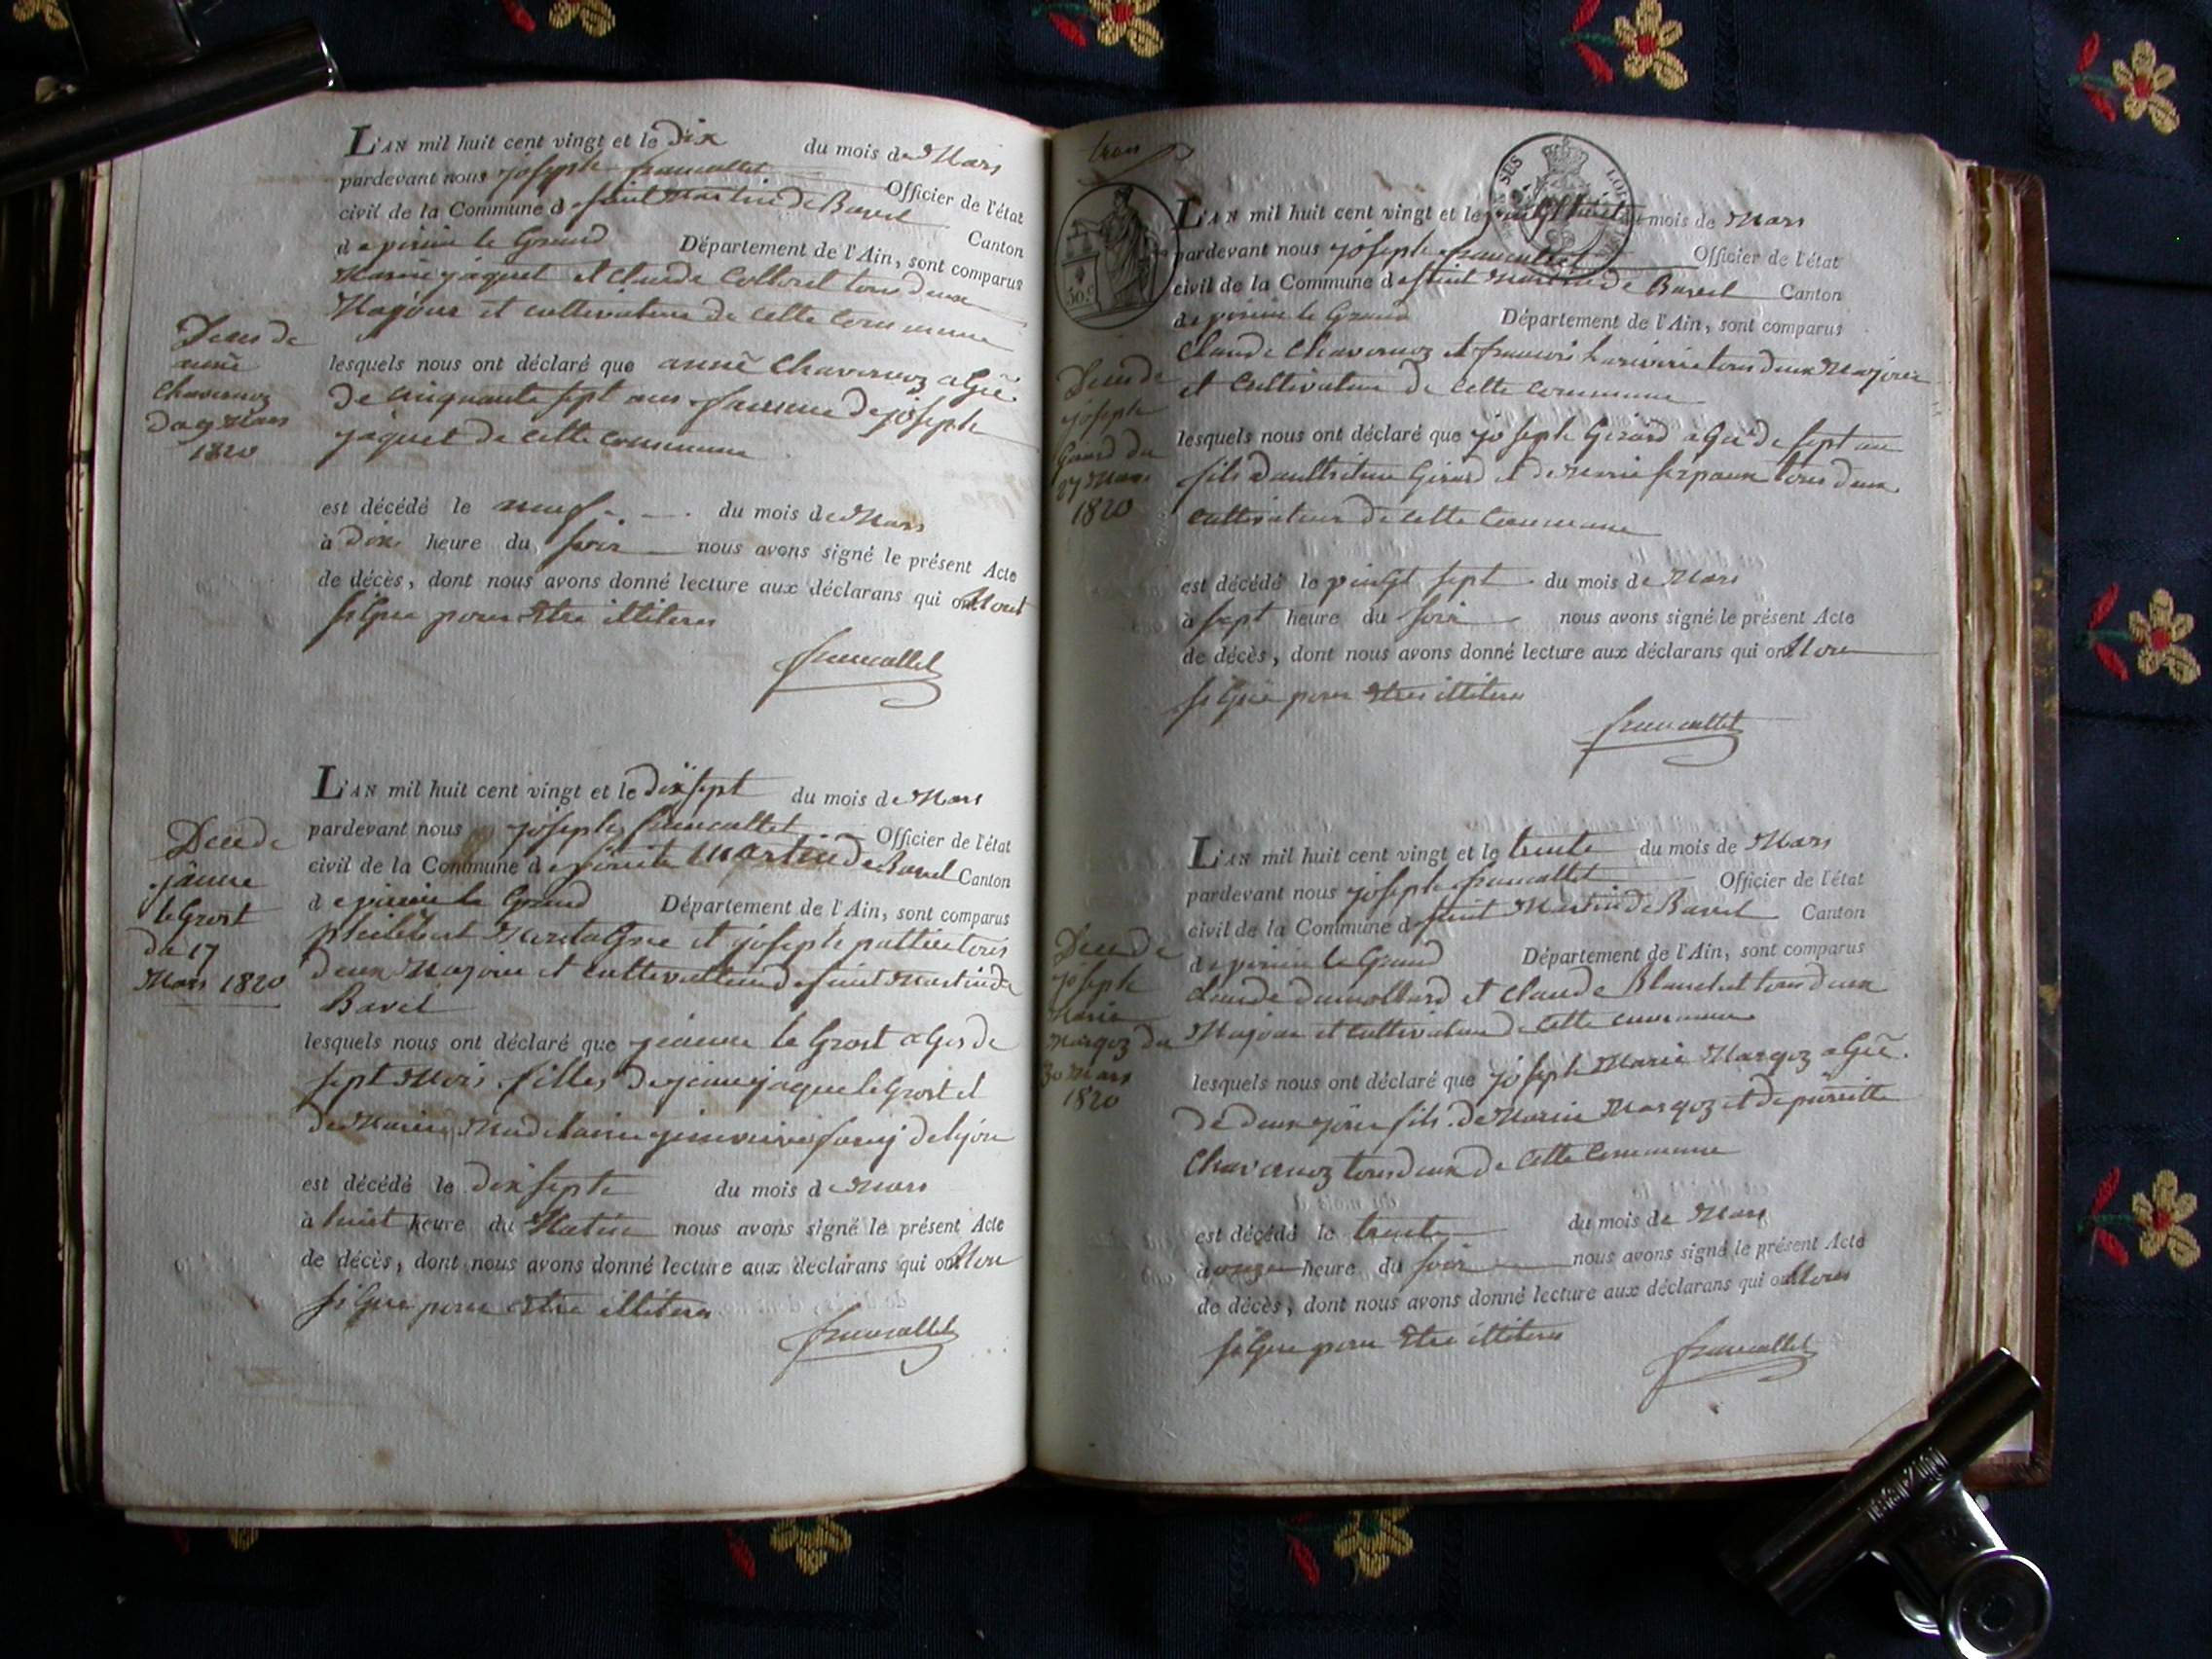 L'AN mil huit cent vingt et le Dix du mois de Mars
pardevant nous joseph francallet Officier de l'état
civil de la Commune de saint Martin de Bavel Canton
de virieu le Grand Département de l'Ain, sont comparus
Marin jaquet et Claude Collovet tous deux
Majeur et cultivateur de cette commune
Deces de
anne
Chavornoz
Du 9 Mars
1820
lesquels nous ont déclaré que anne Chavornoz agée
De cinquante sept ans femme De joseph
jaquet de cette commune
est décédé le neuf du mois de Mars
à Dix heure du soir nous avons signé le présent Acte
de décès, dont nous avons donné lecture aux déclarans qui ont
signe pour etre illiteres
francallet
L'AN mil huit cent vingt et le Dix sept du mois de Mars
pardevant nous joseph francallet Officier de l'état
civil de la Commune de sainte Martin de Bavel Canton
de virieu le Grand Département de l'Ain, sont comparus
philibert Montagne et joseph tous
deux Majeur et cultivatteur de saint Martin de
Bavel
Decede
jeanne
le Grost
du 17
Mars 1820
lesquels nous ont déclaré que jeanne le Grost ages de
sept Mois filles De jeanjaque le Grost et
de Marie Madelaine genevieve de lyon
est décédé le Dix septe du mois de Mars
à huit heure du Matin nous avons signé le présent Acte
de décès, dont nous avons donné lecture aux déclarans qui ont
signe pour etre illiteres
francallet
trois
SES LOI
50 c
L'AN mil huit cent vingt et le vingt huit du mois de Mars
pardevant nous joseph francallet Officier de l'état
civil de la Commune de saint Martin de Bavel Canton
de virieu le Grand Département de l'Ain, sont comparus
Claude Chavornoz et francois tous deux Majeur
et cultivateur de cette commune
Decede
joseph
Girard du
27 Mars
1820
lesquels nous ont déclaré que joseph Girard agé de sept ans
fils Girard et de Marie tous deux
cultivateur de cette commune
est décédé le vingt sept du mois de Mars
à sept heure du soir nous avons signé le présent Acte
de décès, dont nous avons donné lecture aux déclarans qui ont
signe pour etres illiteres
francallet
L'AN mil huit cent vingt et le trente du mois de Mars
pardevant nous joseph francallet Officier de l'état
civil de la Commune de saint Martin de Bavel Canton
de virieu le Grand Département de l'Ain, sont comparus
Claude dumollard et Claude Blanchet tous deux
Majeur et cultivateur de cette commune
Decede
joseph
Marie
Margoz du
30 Mars
1820
lesquels nous ont déclaré que joseph Marie Margoz agée
De deux jour fils de Marin Margoz et de pierrette
Chavornoz tous deux de cette commune
est décédé le trente du mois de Mars
à onze heure du soir nous avons signé le présent Acte
de décès, dont nous avons donné lecture aux déclarans qui ont
signe pour etre illiteres
francallet